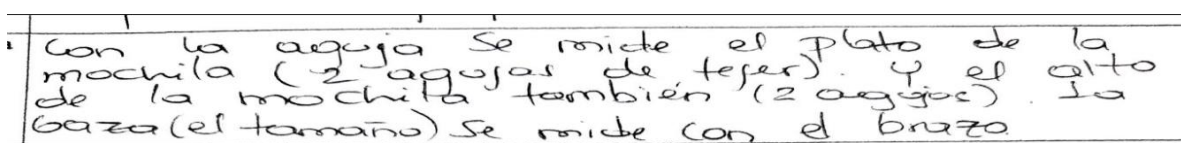 con la aguja se mide el plato de la
mochila (2 agujas de tejer). Y el alto
de la mochila también (2 agujas). La
gaza (el tamaño) se mide con el brazo